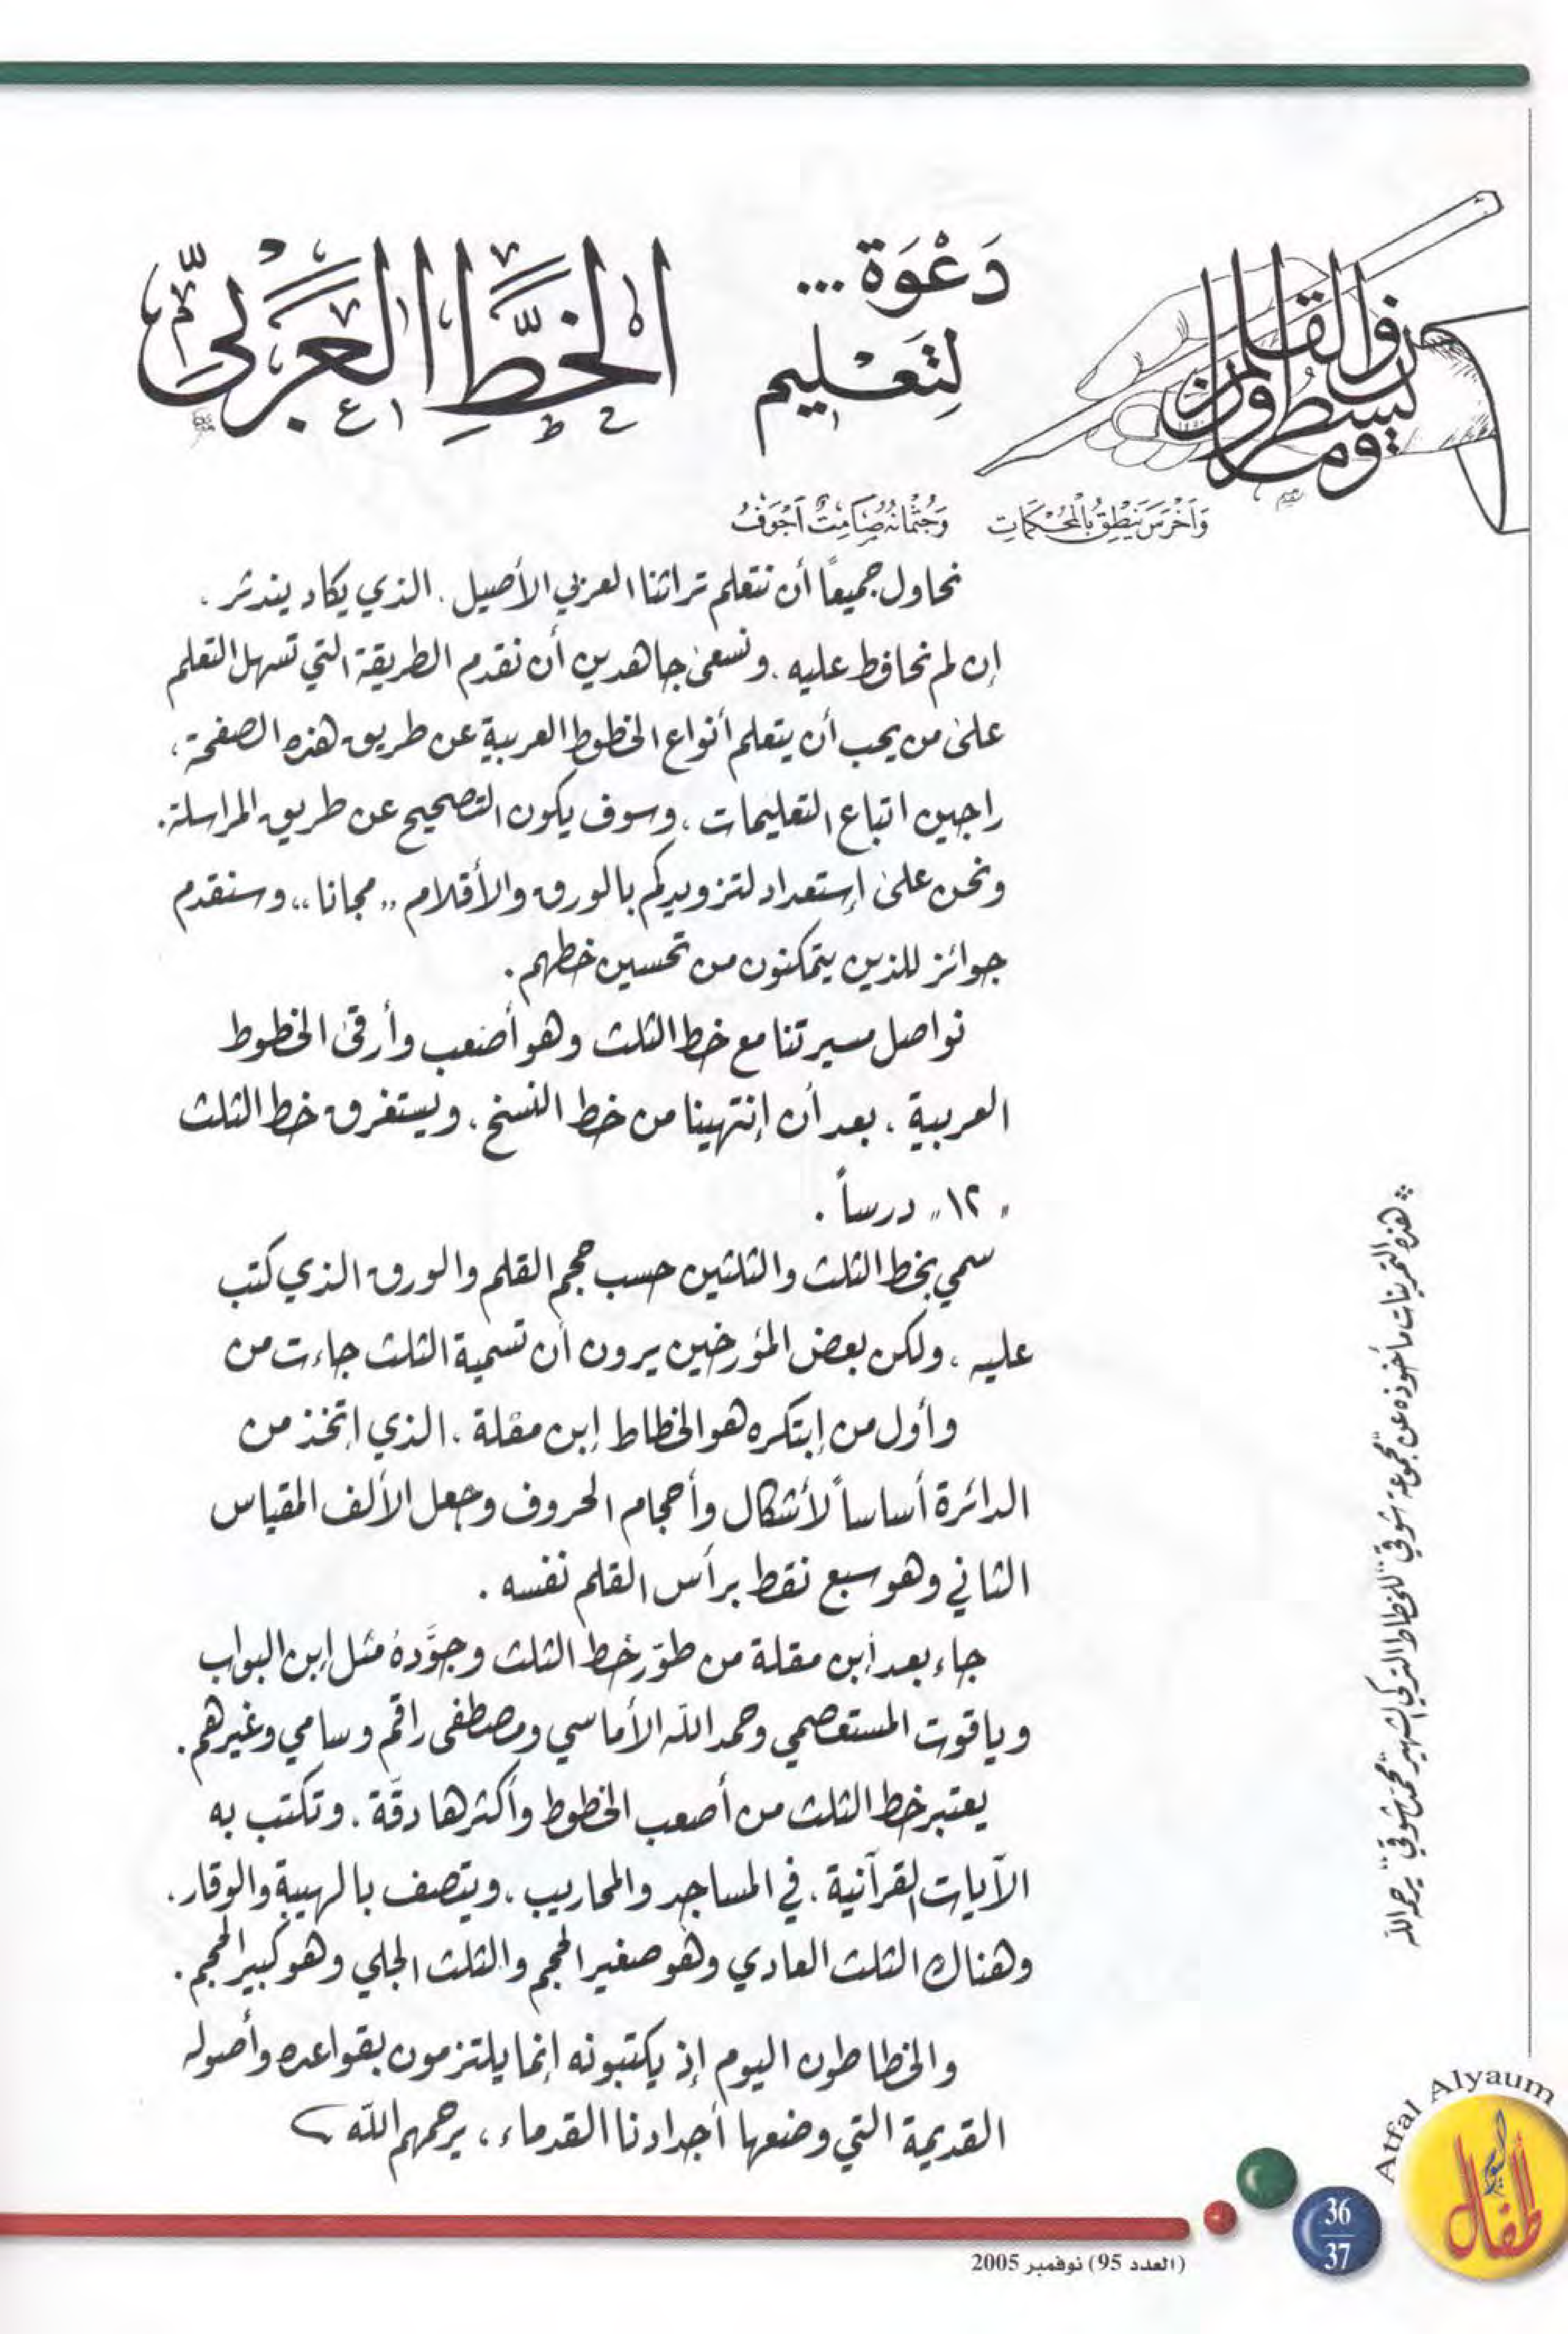 دَعْوَة...
لِتَعْلِيم
الخَطِّ العَرَبيِّ
ن والقلم
وما يسطرون
وَأَخْرَسَ يَنْطِقُ بِالْمُحْكَمَاتِ وَجُثْمَانُهُ صَامِتٌ أَجْوَفُ
نحاول جميعًا أن نتعلم تراثنا العربي الأصيل، الذي يكاد يندثر،
إن لم نحافظ عليه، ونسعى جاهدين أن نقدم الطريقة التي تسهل التعلم
على من يحب أن يتعلم أنواع الخطوط العربية عن طريق هذه الصفحة،
راجين اتباع التعليمات، وسوف يكون التصحيح عن طريق المراسلة.
ونحن على إستعداد لتزويدكم بالورق والأقلام "مجانا"، وسنقدم
جوائز للذين يتمكنون من تحسين خطهم.
نواصل مسيرتنا مع خط الثلث وهو أصعب وأرقى الخطوط
العربية، بعد أن إنتهينا من خط النسخ، ويستغرق خط الثلث
"١٢" درساً.
سمي بخط الثلث والثلثين حسب حجم القلم والورق الذي كتب
عليه، ولكن بعض المؤرخين يرون أن تسمية الثلث جاءت من
وأول من إبتكره هو الخطاط إبن مقلة، الذي اتخذ من
الدائرة أساساً لأشكال وأحجام الحروف وجعل الألف المقياس
الثاني وهو سبع نقط برأس القلم نفسه.
جاء بعد إبن مقلة من طوّر خط الثلث وجوَّدهُ مثل إبن البواب
وياقوت المستعصمي وحمد الله الأماسي ومصطفى راقم وسامي وغيرهم.
يعتبر خط الثلث من أصعب الخطوط وأكثرها دقّة، وتكتب به
الآيات القرآنية، في المساجد والمحاريب، ويتصف بالهيبة والوقار،
وهناك الثلث العادي وهو صغير الحجم والثلث الجلي وهو كبير الحجم.
والخطاطون اليوم إذ يكتبونه إنما يلتزمون بقواعده وأصوله
القديمة التي وضعها أجدادنا القدماء، يرحمهم الله
* هذه التمرينات مأخوذة عن "مجموعة شوقي" للخطاط التركي الشهير "محمد شوقي" يرحمه الله
Atfal Alyaum
أطفال اليوم
36
37
(العدد 95) نوفمبر 2005